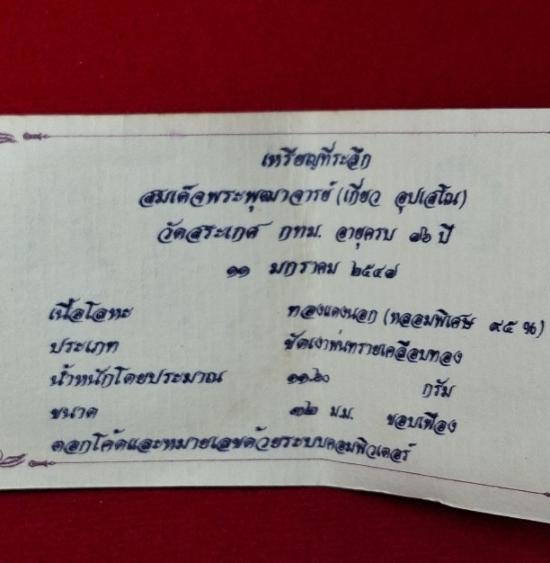 เหรียญที่ระลึก
สมเด็จพระพุฒาจารย์ (เกี่ยว อุปเสโณ)
วัดสระเกศ กทม. อายุครบ ๗๖ ปี
๑๑ มกราคม ๒๕๔๗
เนื้อโลหะ ทองแดงนอก (หลอมพิเศษ ๙๕ %)
ประเภท ขัดเงาพ่นทรายเคลือบทอง
น้ำหนักโดยประมาณ ๑๑.๖๐ กรัม
ขนาด ๓๒ ม.ม. ขอบเฟือง
ตอกโค้ดและหมายเลขด้วยระบบคอมพิวเตอร์